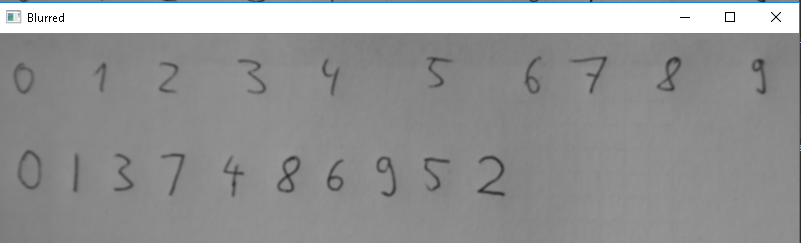 Blurred
0 1 2 3 4 5 6 7 8 9
0 1 3 7 4 8 6 9 5 2